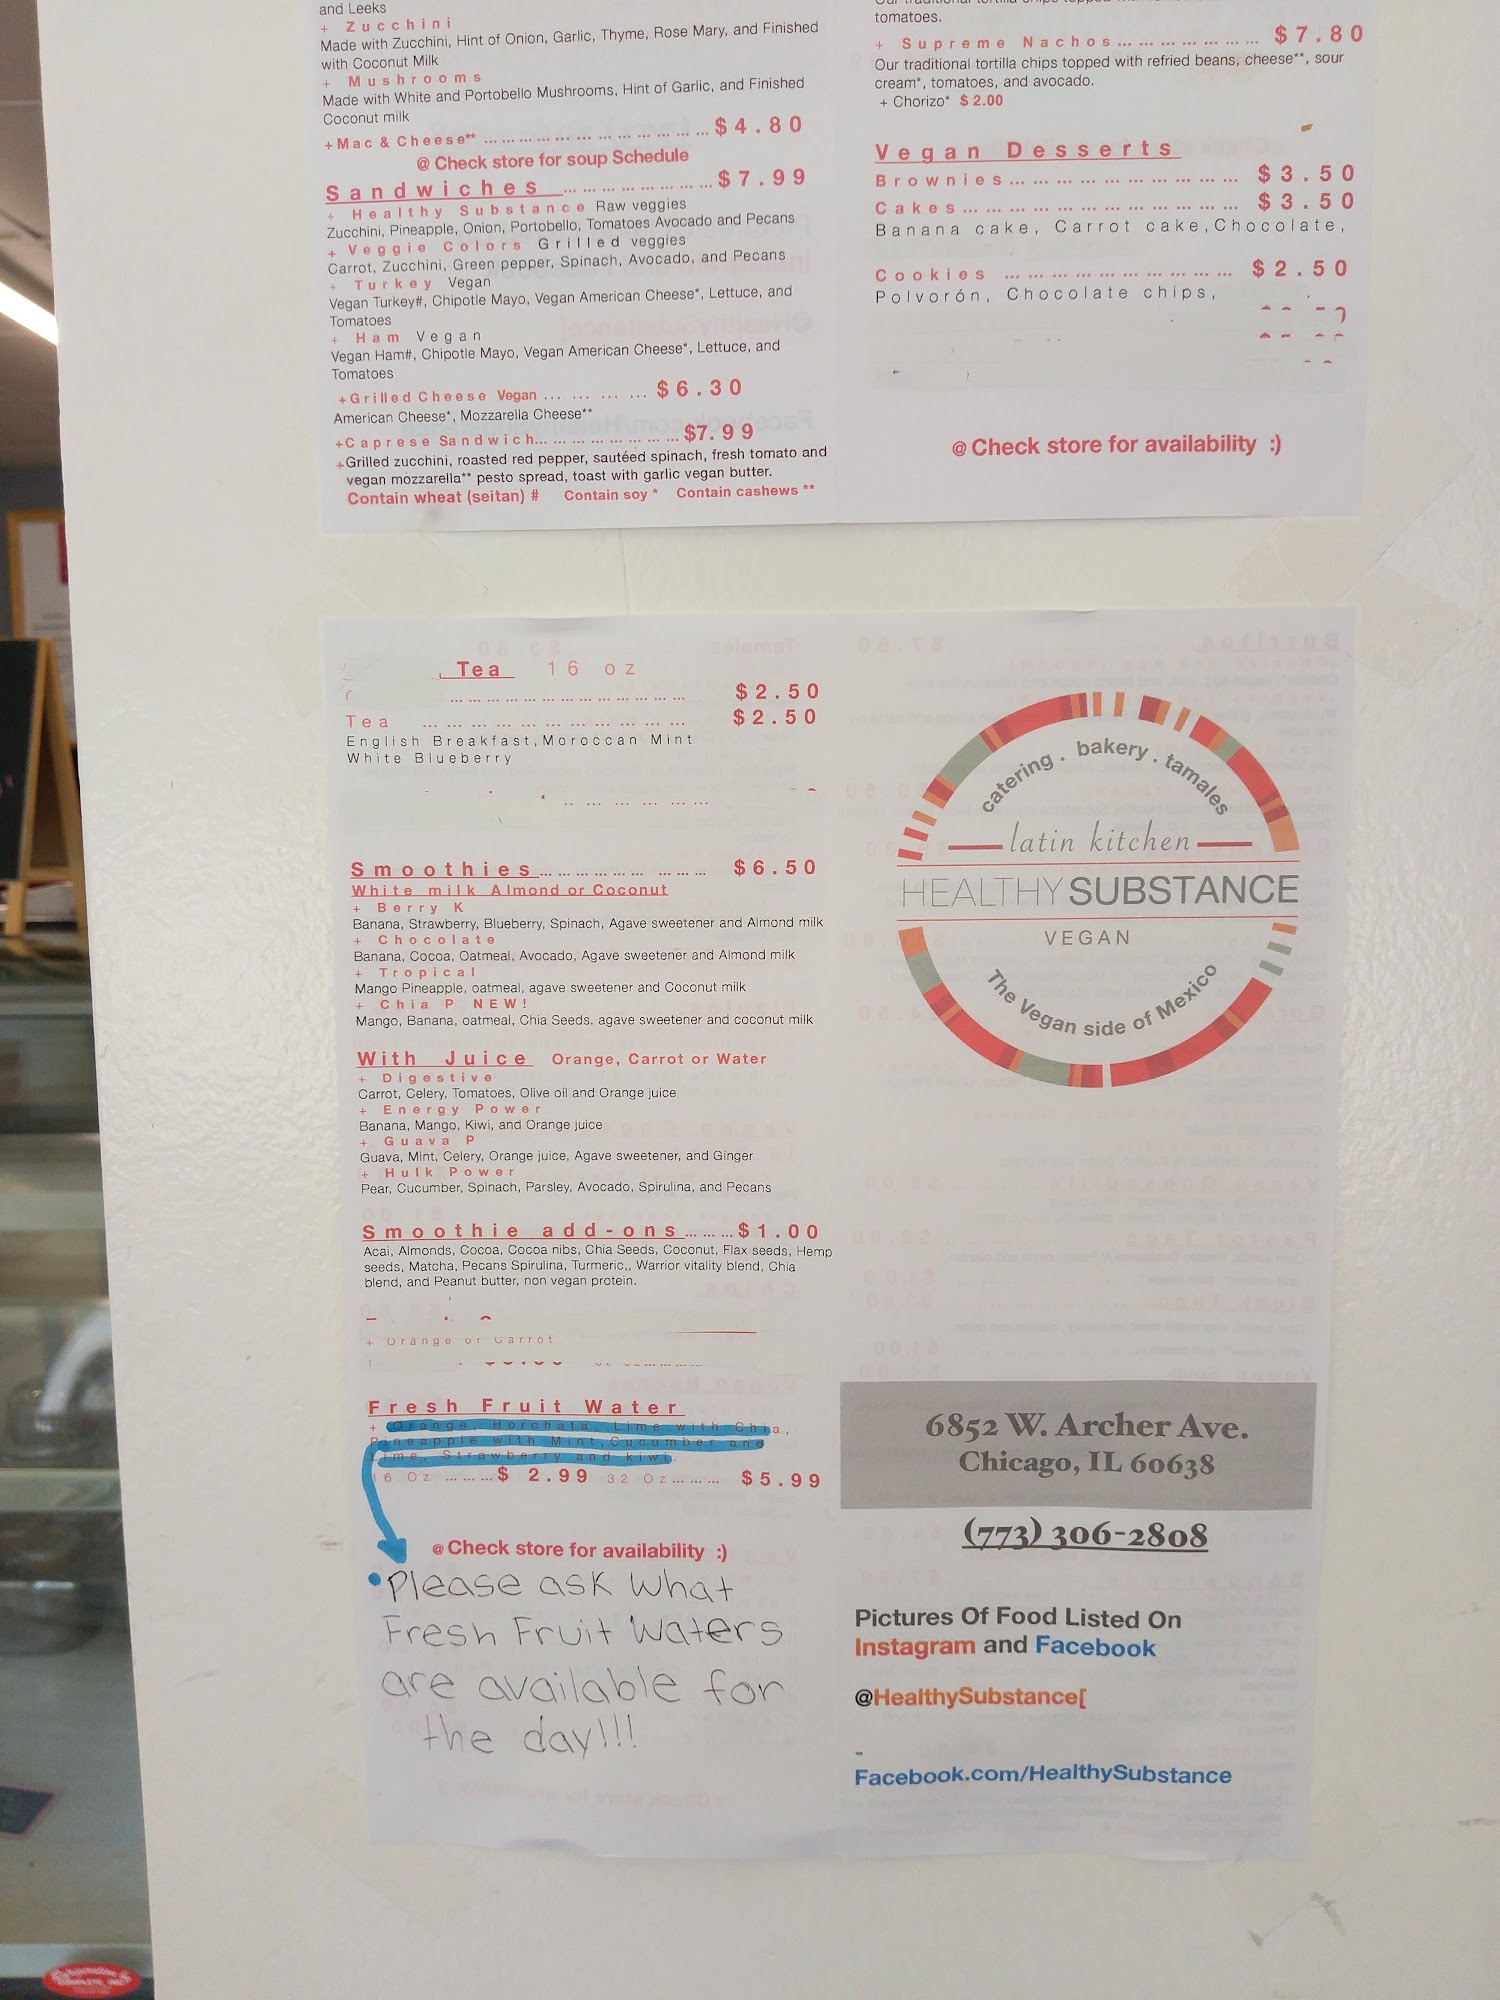 and Leeks
+ Zucchini
Made with Zucchini, Hint of Onion, Garlic, Thyme, Rose Mary, and Finished
with Coconut Milk
+ Mushrooms
Made with White and Portobello Mushrooms, Hint of Garlic, and Finished
Coconut milk
+Mac & Cheese** ... ... ... ... ... ... ... ... ... ... ... $4.80
@ Check store for soup Schedule
Sandwiches ... ... ... ... ... ... ... ... $7.99
+ Healthy Substance Raw veggies
Zucchini, Pineapple, Onion, Portobello, Tomatoes Avocado and Pecans
+ Veggie Colors Grilled veggies
Carrot, Zucchini, Green pepper, Spinach, Avocado, and Pecans
+ Turkey Vegan
Vegan Turkey#, Chipotle Mayo, Vegan American Cheese*, Lettuce, and
Tomatoes
+ Ham Vegan
Vegan Ham#, Chipotle Mayo, Vegan American Cheese*, Lettuce, and
Tomatoes
+Grilled Cheese Vegan ... ... ... ... ... $6.30
American Cheese*, Mozzarella Cheese**
+Caprese Sandwich... ... ... ... ... ... ... ... $7.99
+Grilled zucchini, roasted red pepper, sautéed spinach, fresh tomato and
vegan mozzarella** pesto spread, toast with garlic vegan butter.
Contain wheat (seitan) # Contain soy * Contain cashews **
tomatoes.
+ Supreme Nachos... ... ... ... ... ... ... $7.80
Our traditional tortilla chips topped with refried beans, cheese**, sour
cream*, tomatoes, and avocado.
+ Chorizo* $2.00
Vegan Desserts
Brownies... ... ... ... ... ... ... ... ... ... $3.50
Cakes... ... ... ... ... ... ... ... ... ... ... ... $3.50
Banana cake, Carrot cake, Chocolate,
Cookies ... ... ... ... ... ... ... ... ... ... $2.50
Polvorón, Chocolate chips,
@ Check store for availability :)
Tea 16 oz
... ... ... ... ... ... ... ... ... ... $2.50
Tea ... ... ... ... ... ... ... ... ... ... $2.50
English Breakfast, Moroccan Mint
White Blueberry
Smoothies... ... ... ... ... ... ... ... $6.50
White milk Almond or Coconut
+ Berry K
Banana, Strawberry, Blueberry, Spinach, Agave sweetener and Almond milk
+ Chocolate
Banana, Cocoa, Oatmeal, Avocado, Agave sweetener and Almond milk
+ Tropical
Mango Pineapple, oatmeal, agave sweetener and Coconut milk
+ Chia P NEW!
Mango, Banana, oatmeal, Chia Seeds, agave sweetener and coconut milk
With Juice Orange, Carrot or Water
+ Digestive
Carrot, Celery, Tomatoes, Olive oil and Orange juice
+ Energy Power
Banana, Mango, Kiwi, and Orange juice
+ Guava P
Guava, Mint, Celery, Orange juice, Agave sweetener, and Ginger
+ Hulk Power
Pear, Cucumber, Spinach, Parsley, Avocado, Spirulina, and Pecans
Smoothie add-ons... ... ... $1.00
Acai, Almonds, Cocoa, Cocoa nibs, Chia Seeds, Coconut, Flax seeds, Hemp
seeds, Matcha, Pecans Spirulina, Turmeric,, Warrior vitality blend, Chia
blend, and Peanut butter, non vegan protein.
+ Orange or Carrot
Fresh Fruit Water
+ Orange, Horchata, Lime with Chia,
Pineapple with Mint, Cucumber and
Lime, Strawberry and kiwi.
16 Oz ... ... ... $ 2.99 32 Oz... ... ... $5.99
@ Check store for availability :)
• Please ask what
Fresh Fruit Waters
are available for
the day!!!
catering . bakery . tamales
latin kitchen
HEALTHY SUBSTANCE
VEGAN
The Vegan side of Mexico
6852 W. Archer Ave.
Chicago, IL 60638
(773) 306-2808
Pictures Of Food Listed On
Instagram and Facebook
@HealthySubstance[
-
Facebook.com/HealthySubstance